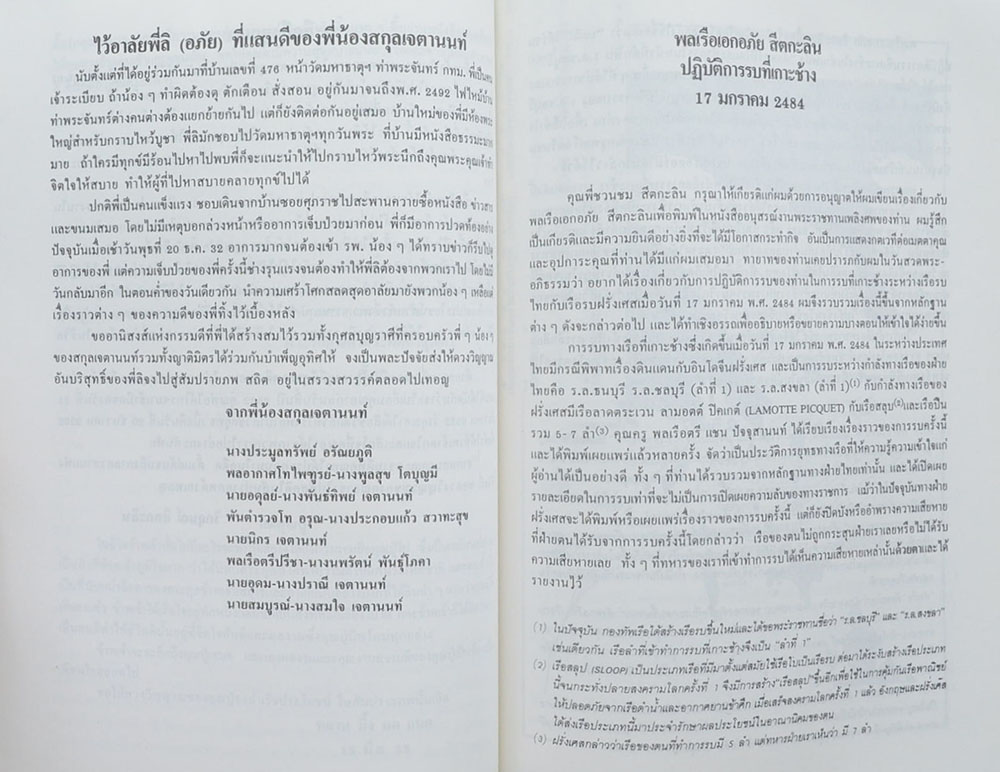 ไว้อาลัยพี่ลิ (อภัย) ที่แสนดีของพี่น้องสกุลเจตานนท์
นับตั้งแต่ที่ได้อยู่ร่วมกันมาที่บ้านเลขที่ 476 หน้าวัดมหาธาตุฯ ท่าพระจันทร์ กทม. พี่เป็นคน
เจ้าระเบียบ ถ้าน้อง ๆ ทำผิดต้องดุ ตักเตือน สั่งสอน อยู่กันมาจนถึงพ.ศ. 2492 ไฟไหม้บ้าน
ท่าพระจันทร์ต่างคนต่างต้องแยกย้ายกันไป แต่ก็ยังติดต่อกันอยู่เสมอ บ้านใหม่ของพี่มีห้องพระ
ใหญ่สำหรับกราบไหว้บูชา พี่ลิมักชอบไปวัดมหาธาตุฯทุกวันพระ ที่บ้านมีหนังสือธรรมะมาก
มาย ถ้าใครมีทุกข์มีร้อนไปหาไปพบพี่ก็จะแนะนำให้ไปกราบไหว้พระนึกถึงคุณพระคุณเจ้าทำ
จิตใจให้สบาย ทำให้ผู้ที่ไปหาสบายคลายทุกข์ไปได้
ปกติพี่เป็นคนแข็งแรง ชอบเดินจากบ้านซอยศุภราชไปสะพานควายซื้อหนังสือ ข่าวสาร
และขนมเสมอ โดยไม่มีเหตุบอกล่วงหน้าหรืออาการเจ็บป่วยมาก่อน พี่ก็มีอาการปวดท้องอย่าง
ปัจจุบันเมื่อเช้าวันพุธที่ 20 ธ.ค. 32 อาการมากจนต้องเข้า รพ. น้อง ๆ ได้ทราบข่าวก็รีบไปดู
อาการของพี่ แต่ความเจ็บป่วยของพี่ครั้งนี้ช่างรุนแรงจนต้องทำให้พี่ลิต้องจากพวกเราไป โดยไม่มี
วันกลับมาอีก ในตอนค่ำของวันเดียวกัน นำความเศร้าโศกสลดสุดอาลัยมายังพวกน้อง ๆ เหลือแต่
เรื่องราวต่าง ๆ ของความดีของพี่ทิ้งไว้เบื้องหลัง
ขออานิสงส์แห่งกรรมดีที่พี่ได้สร้างสมไว้รวมทั้งกุศลบุญราศีที่ครอบครัวพี่ ๆ น้อง ๆ
ของสกุลเจตานนท์รวมทั้งญาติมิตรได้ร่วมกันบำเพ็ญอุทิศให้ จงเป็นพละปัจจัยส่งให้ดวงวิญญาณ
อันบริสุทธิ์ของพี่ลิจงไปสู่สัมปรายภพ สถิต อยู่ในสรวงสวรรค์ตลอดไปเทอญ
จากพี่น้องสกุลเจตานนท์
นางประมูลทรัพย์ อรัณยภูติ
พลอากาศโทไพฑูรย์-นางพูลสุข โอบุญมี
นายอดุลย์-นางพันธ์ทิพย์ เจตานนท์
พันตำรวจโท อรุณ-นางประกอบแก้ว สวาทะสุข
นายนิกร เจตานนท์
พลเรือตรีปรีชา-นางนพรัตน์ พันธุ์โภคา
นายอุดม-นางปราณี เจตานนท์
นายสมบูรณ์-นางสมใจ เจตานนท์
พลเรือเอกอภัย สีตกะลิน
ปฏิบัติการรบที่เกาะช้าง
17 มกราคม 2484
คุณพี่ชวนชม สีตกะลิน กรุณาให้เกียรติแก่ผมด้วยการอนุญาตให้ผมเขียนเรื่องเกี่ยวกับ
พลเรือเอกอภัย สีตกะลินเพื่อพิมพ์ในหนังสืออนุสรณ์งานพระราชทานเพลิงศพของท่าน ผมรู้สึก
เป็นเกียรติและมีความยินดีอย่างยิ่งที่จะได้มีโอกาสกระทำกิจ อันเป็นการแสดงกตเวทีต่อเมตตาคุณ
และอุปการะคุณที่ท่านได้มีแก่ผมเสมอมา ทายาทของท่านเคยปรารภกับผมในวันสวดพระ-
อภิธรรมว่า อยากได้เรื่องเกี่ยวกับการปฏิบัติการรบของท่านในการรบที่เกาะช้างระหว่างเรือรบ
ไทยกับเรือรบฝรั่งเศสเมื่อวันที่ 17 มกราคม พ.ศ. 2484 ผมจึงรวบรวมเรื่องนี้ขึ้นจากหลักฐาน
ต่าง ๆ ดังจะกล่าวต่อไป และได้ทำเชิงอรรถเพื่ออธิบายหรือขยายความบางตอนให้เข้าใจได้ง่ายขึ้น
การรบทางเรือที่เกาะช้างซึ่งเกิดขึ้นเมื่อวันที่ 17 มกราคม พ.ศ. 2484 ในระหว่างประเทศ
ไทยมีกรณีพิพาทเรื่องดินแดนกับอินโดจีนฝรั่งเศส และเป็นการรบระหว่างกำลังทางเรือของฝ่าย
ไทย คือ ร.ล.ธนบุรี ร.ล.ชลบุรี (ลำที่ 1) และ ร.ล.สงขลา (ลำที่ 1)(1) กับกำลังทางเรือของ
ฝรั่งเศสมีเรือลาดตระเวน ลามอตต์ ปิคเกต์ (LAMOTTE PICQUET) กับเรือสลุป(2)และเรือปืน
รวม 5-7 ลำ(3) คุณครู พลเรือตรี แชน ปัจจุสานนท์ ได้เรียบเรียงเรื่องราวของการรบครั้งนี้
และได้พิมพ์เผยแพร่แล้วหลายครั้ง จัดว่าเป็นประวัติการยุทธทางเรือที่ให้ความรู้ความเข้าใจแก่
ผู้อ่านได้เป็นอย่างดี ทั้ง ๆ ที่ท่านได้รวบรวมจากหลักฐานทางฝ่ายไทยเท่านั้น และได้เปิดเผย
รายละเอียดในการรบเท่าที่จะไม่เป็นการเปิดเผยความลับของทางราชการ แม้ว่าในปัจจุบันทางฝ่าย
ฝรั่งเศสจะได้พิมพ์หรือเผยแพร่เรื่องราวของการรบครั้งนี้ แต่ก็ยังปิดบังหรืออำพรางความเสียหาย
ที่ฝ่ายตนได้รับจากการรบครั้งนี้โดยกล่าวว่า เรือของตนไม่ถูกกระสุนฝ่ายเราเลยหรือไม่ได้รับ
ความเสียหายเลย ทั้ง ๆ ที่ทหารของเราที่เข้าทำการรบได้เห็นความเสียหายเหล่านั้นด้วยตาและได้
รายงานไว้
(1) ในปัจจุบัน กองทัพเรือได้สร้างเรือรบขึ้นใหม่และได้ขอพระราชทานชื่อว่า "ร.ล.ชลบุรี" และ "ร.ล.สงขลา"
เช่นเดียวกัน เรือลำที่เข้าทำการรบที่เกาะช้างจึงเป็น "ลำที่ 1"
(2) เรือสลุป (SLOOP) เป็นประเภทเรือที่มีมาตั้งแต่สมัยใช้เรือใบเป็นเรือรบ ต่อมาได้ระงับสร้างเรือประเภท
นี้จนกระทั่งปลายสงครามโลกครั้งที่ 1 จึงมีการสร้าง"เรือสลุป"ขึ้นอีกเพื่อใช้ในการคุ้มกันเรือพาณิชย์
ให้ปลอดภัยจากเรือดำน้ำและอากาศยานข้าศึก เมื่อเสร็จสงครามโลกครั้งที่ 1 แล้ว อังกฤษและฝรั่งเศส
ได้ส่งเรือประเภทนี้มาประจำรักษาผลประโยชน์ในอาณานิคมของตน
(3) ฝรั่งเศสกล่าวว่าเรือของตนที่ทำการรบมี 5 ลำ แต่ทหารฝ่ายเราเห็นว่า มี 7 ลำ